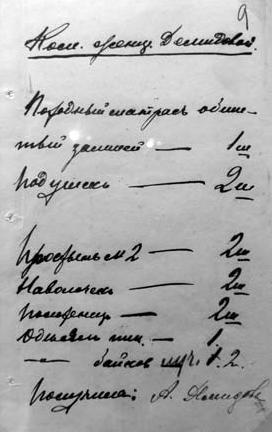 9
Косм. женщ. Демидовой.
Походный матрасъ обши-
тый замшей — 1 ш
Подушекъ — 2 ш
Простынь № 2 — 2 ш
Наволочекъ — 2 ш
Полотенец — 2 ш
Одѣялъ — 1.
—"— байков 2.
Получила: А. Демидова